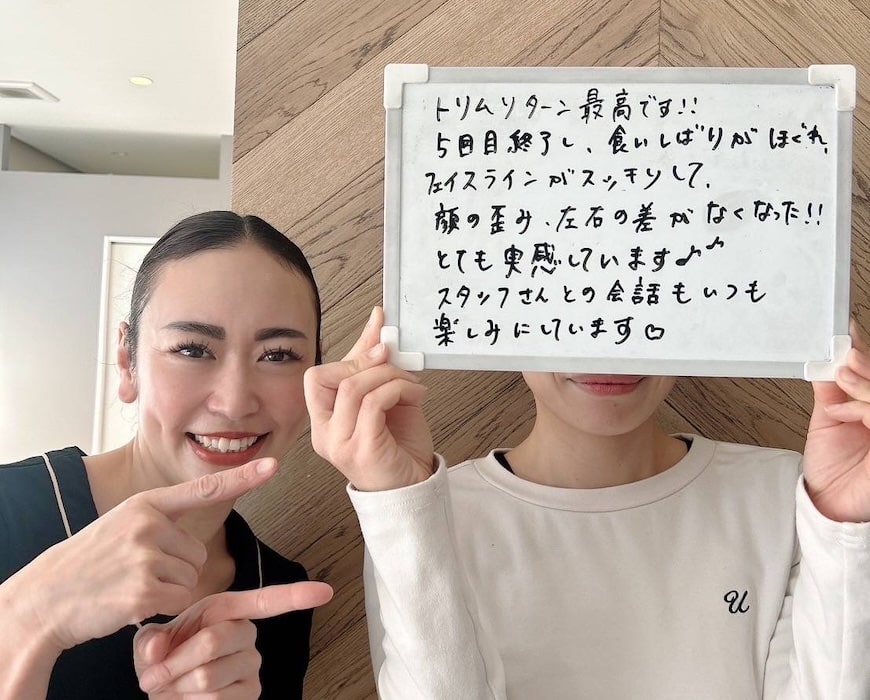 トリムリターン最高です!!
5回目終了し、食いしばりがほぐれ、
フェイスラインがスッキリして、
顔の歪み、左右の差がなくなった!!
とても実感しています♪♪
スタッフさんとの会話もいつも
楽しみにしています♡
U